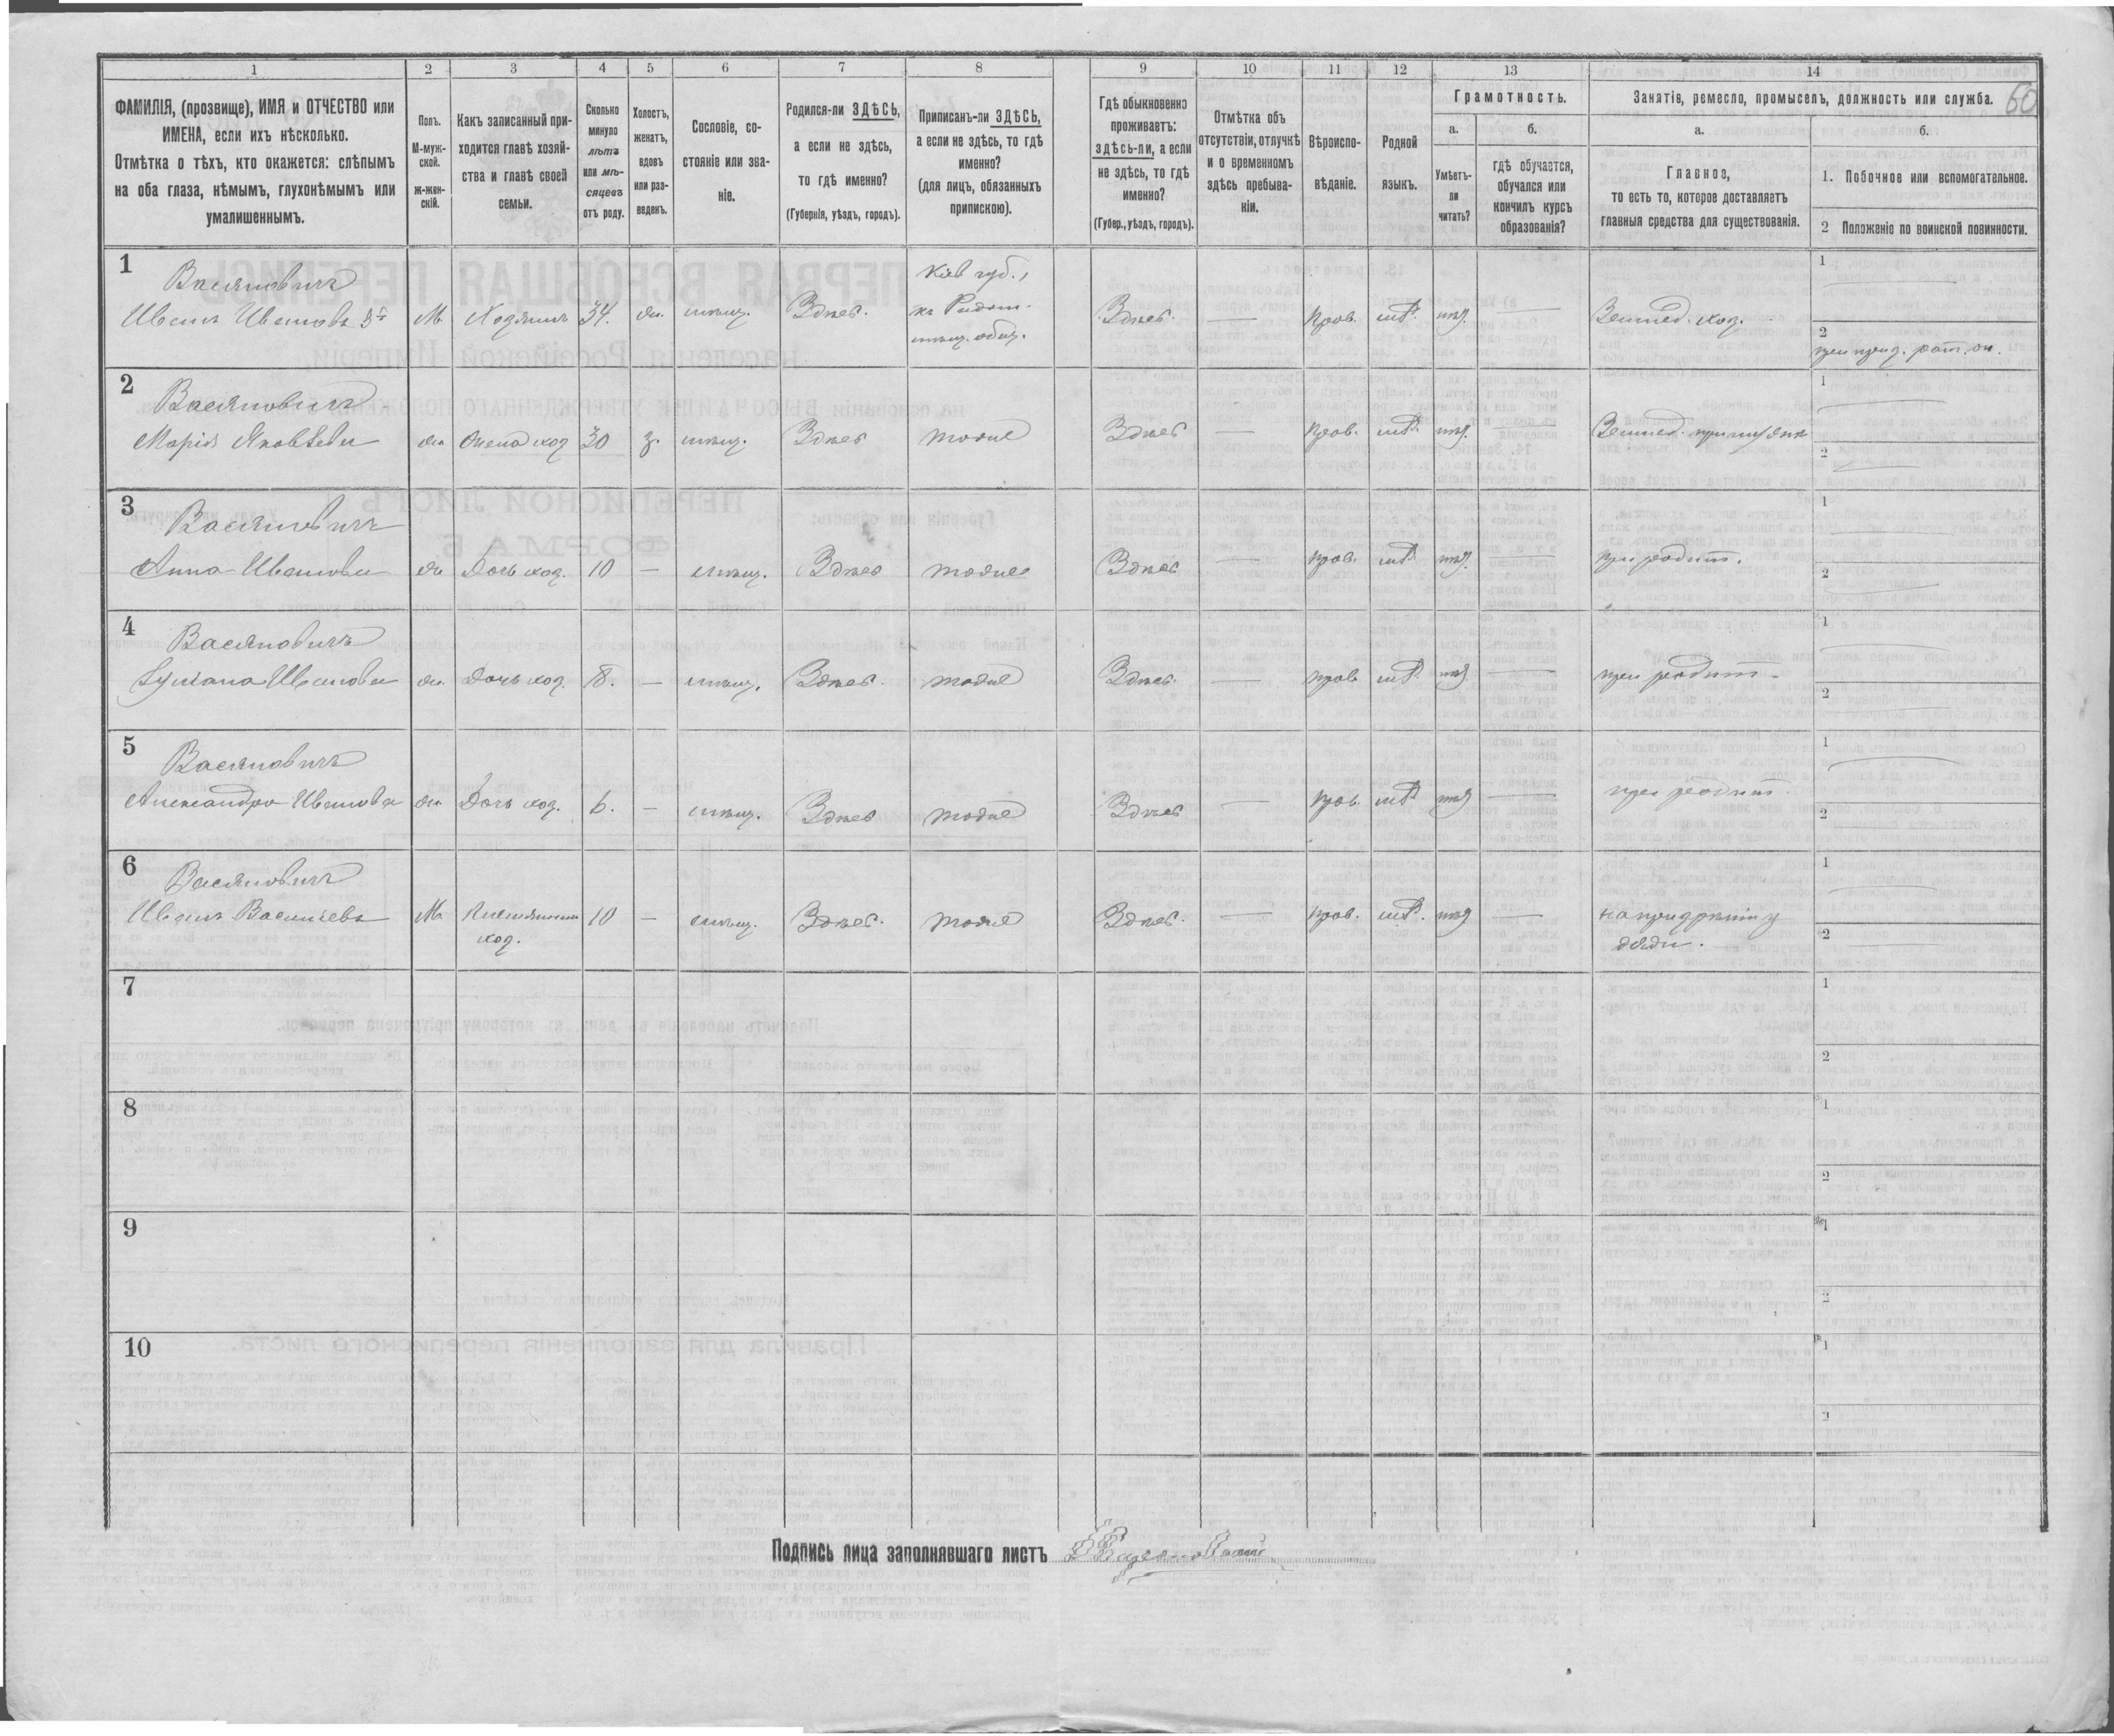 60
1 2 3 4 5 6 7 8 9 10 11 12 13 14
ФАМИЛІЯ, (прозвище), ИМЯ и ОТЧЕСТВО или
ИМЕНА, если ихъ нѣсколько.
Отмѣтка о тѣхъ, кто окажется: слѣпымъ
на оба глаза, нѣмымъ, глухонѣмымъ или
умалишеннымъ.
Полъ.
М-муж-
ской.
ж-жен-
скій.
Какъ записанный при-
ходится главѣ хозяй-
ства и главѣ своей
семьи.
Сколько
минуло
лѣтъ
или мѣ-
сяцевъ
отъ роду.
Холостъ,
женатъ,
вдовъ
или раз-
веденъ.
Сословіе, со-
стояніе или зва-
ніе.
Родился-ли ЗДѢСЬ,
а если не здѣсь,
то гдѣ именно?
(Губернія, уѣздъ, городъ).
Приписанъ-ли ЗДѢСЬ,
а если не здѣсь, то гдѣ
именно?
(для лицъ, обязанныхъ
припискою).
Гдѣ обыкновенно
проживаетъ:
здѣсь-ли, а если
не здѣсь, то гдѣ
именно?
(Губер., уѣздъ, городъ).
Отмѣтка объ
отсутствіи, отлучкѣ
и о временномъ
здѣсь пребыва-
ніи.
Вѣроиспо-
вѣданіе.
Родной
языкъ.
Грамотность.
а.
Умѣетъ-
ли
читать?
б.
гдѣ обучается,
обучался или
кончилъ курсъ
образованія?
Занятіе, ремесло, промыселъ, должность или служба.
а.
Главное,
то есть то, которое доставляетъ
главныя средства для существованія.
б.
1. Побочное или вспомогательное.
2 Положеніе по воинской повинности.
1
Васяновичъ
Иванъ Ивановъ 3й
М. Хозяинъ 34. ж. мѣщ. Здѣсь.
Кіев губ.,
мѣщ. общ.
Здѣсь. — прав. нѣт. — Землед. хоз.
1
2
рат. оп.
2
Васяновичъ
Марія Яковлева
ж. Жена хоз 30 з. мѣщ. Здѣсь тоже Здѣсь — прав. нѣт. — Землед. при мужѣ
1
2
3
Васяновичъ
Анна Иванова
ж Дочь хоз. 10 — мѣщ. Здѣсь тоже Здѣсь — прав. нѣт. — при родит.
1
2
4
Васяновичъ
Иванова
ж. Дочь хоз. 8. — мѣщ. Здѣсь. тоже Здѣсь. — прав. нѣт — при родит.
1
2
5
Васяновичъ
Александра Иванова
ж. Дочь хоз. 6. — мѣщ. Здѣсь тоже Здѣсь — прав. нѣт — при родит.
1
2
6
Васяновичъ
Иванъ Васильевъ
М. Племянникъ 10 — мѣщ. Здѣсь. тоже Здѣсь. — прав. нѣт — на
хоз. дяди.
1
2
7
1
2
8
1
2
9
1
2
10
1
2
Подпись лица заполнявшаго листъ